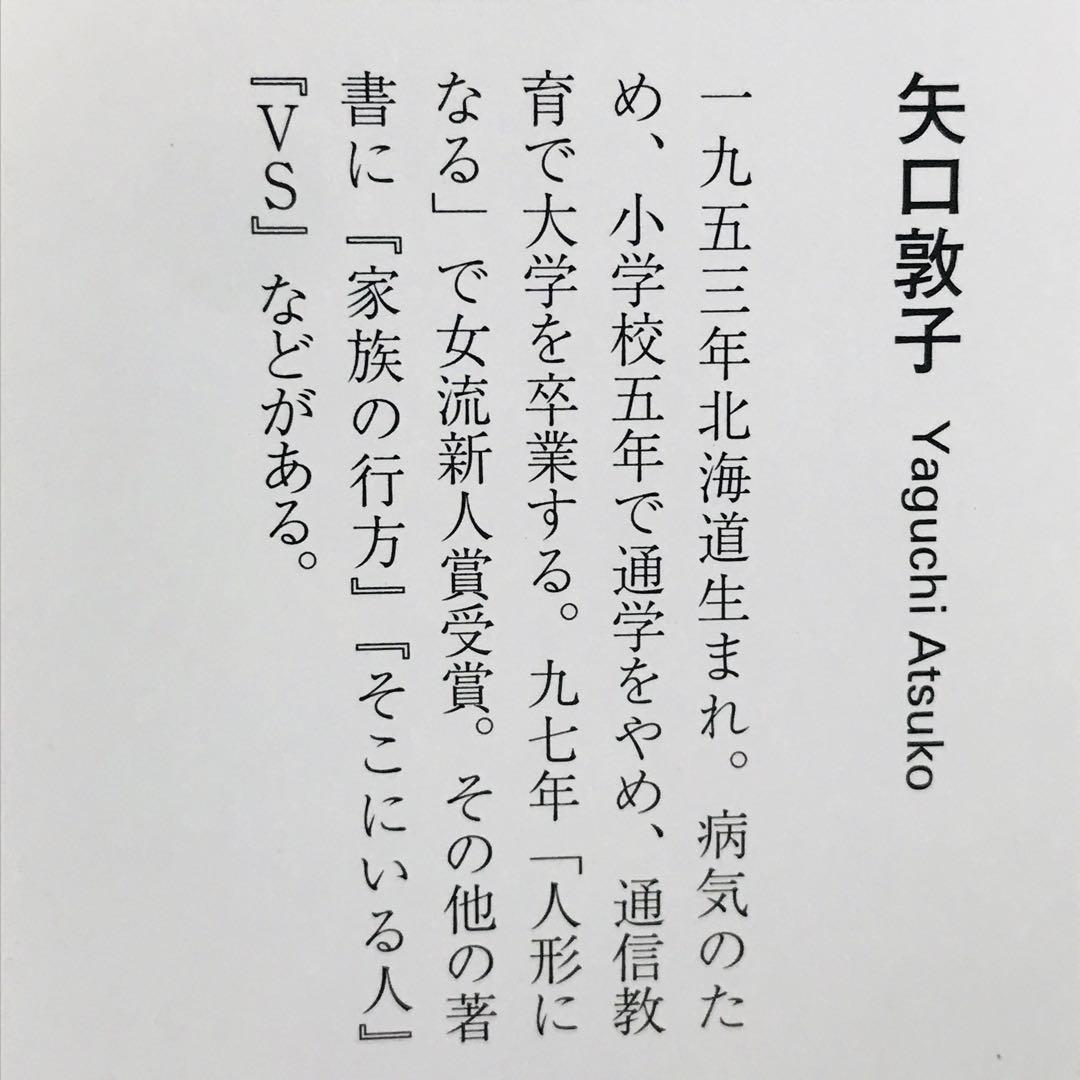 矢口敦子 Yaguchi Atsuko
一九五三年北海道生まれ。病気のた
め、小学校五年で通学をやめ、通信教
育で大学を卒業する。九七年「人形に
なる」で女流新人賞受賞。その他の著
書に『家族の行方』『そこにいる人』
『VS』などがある。